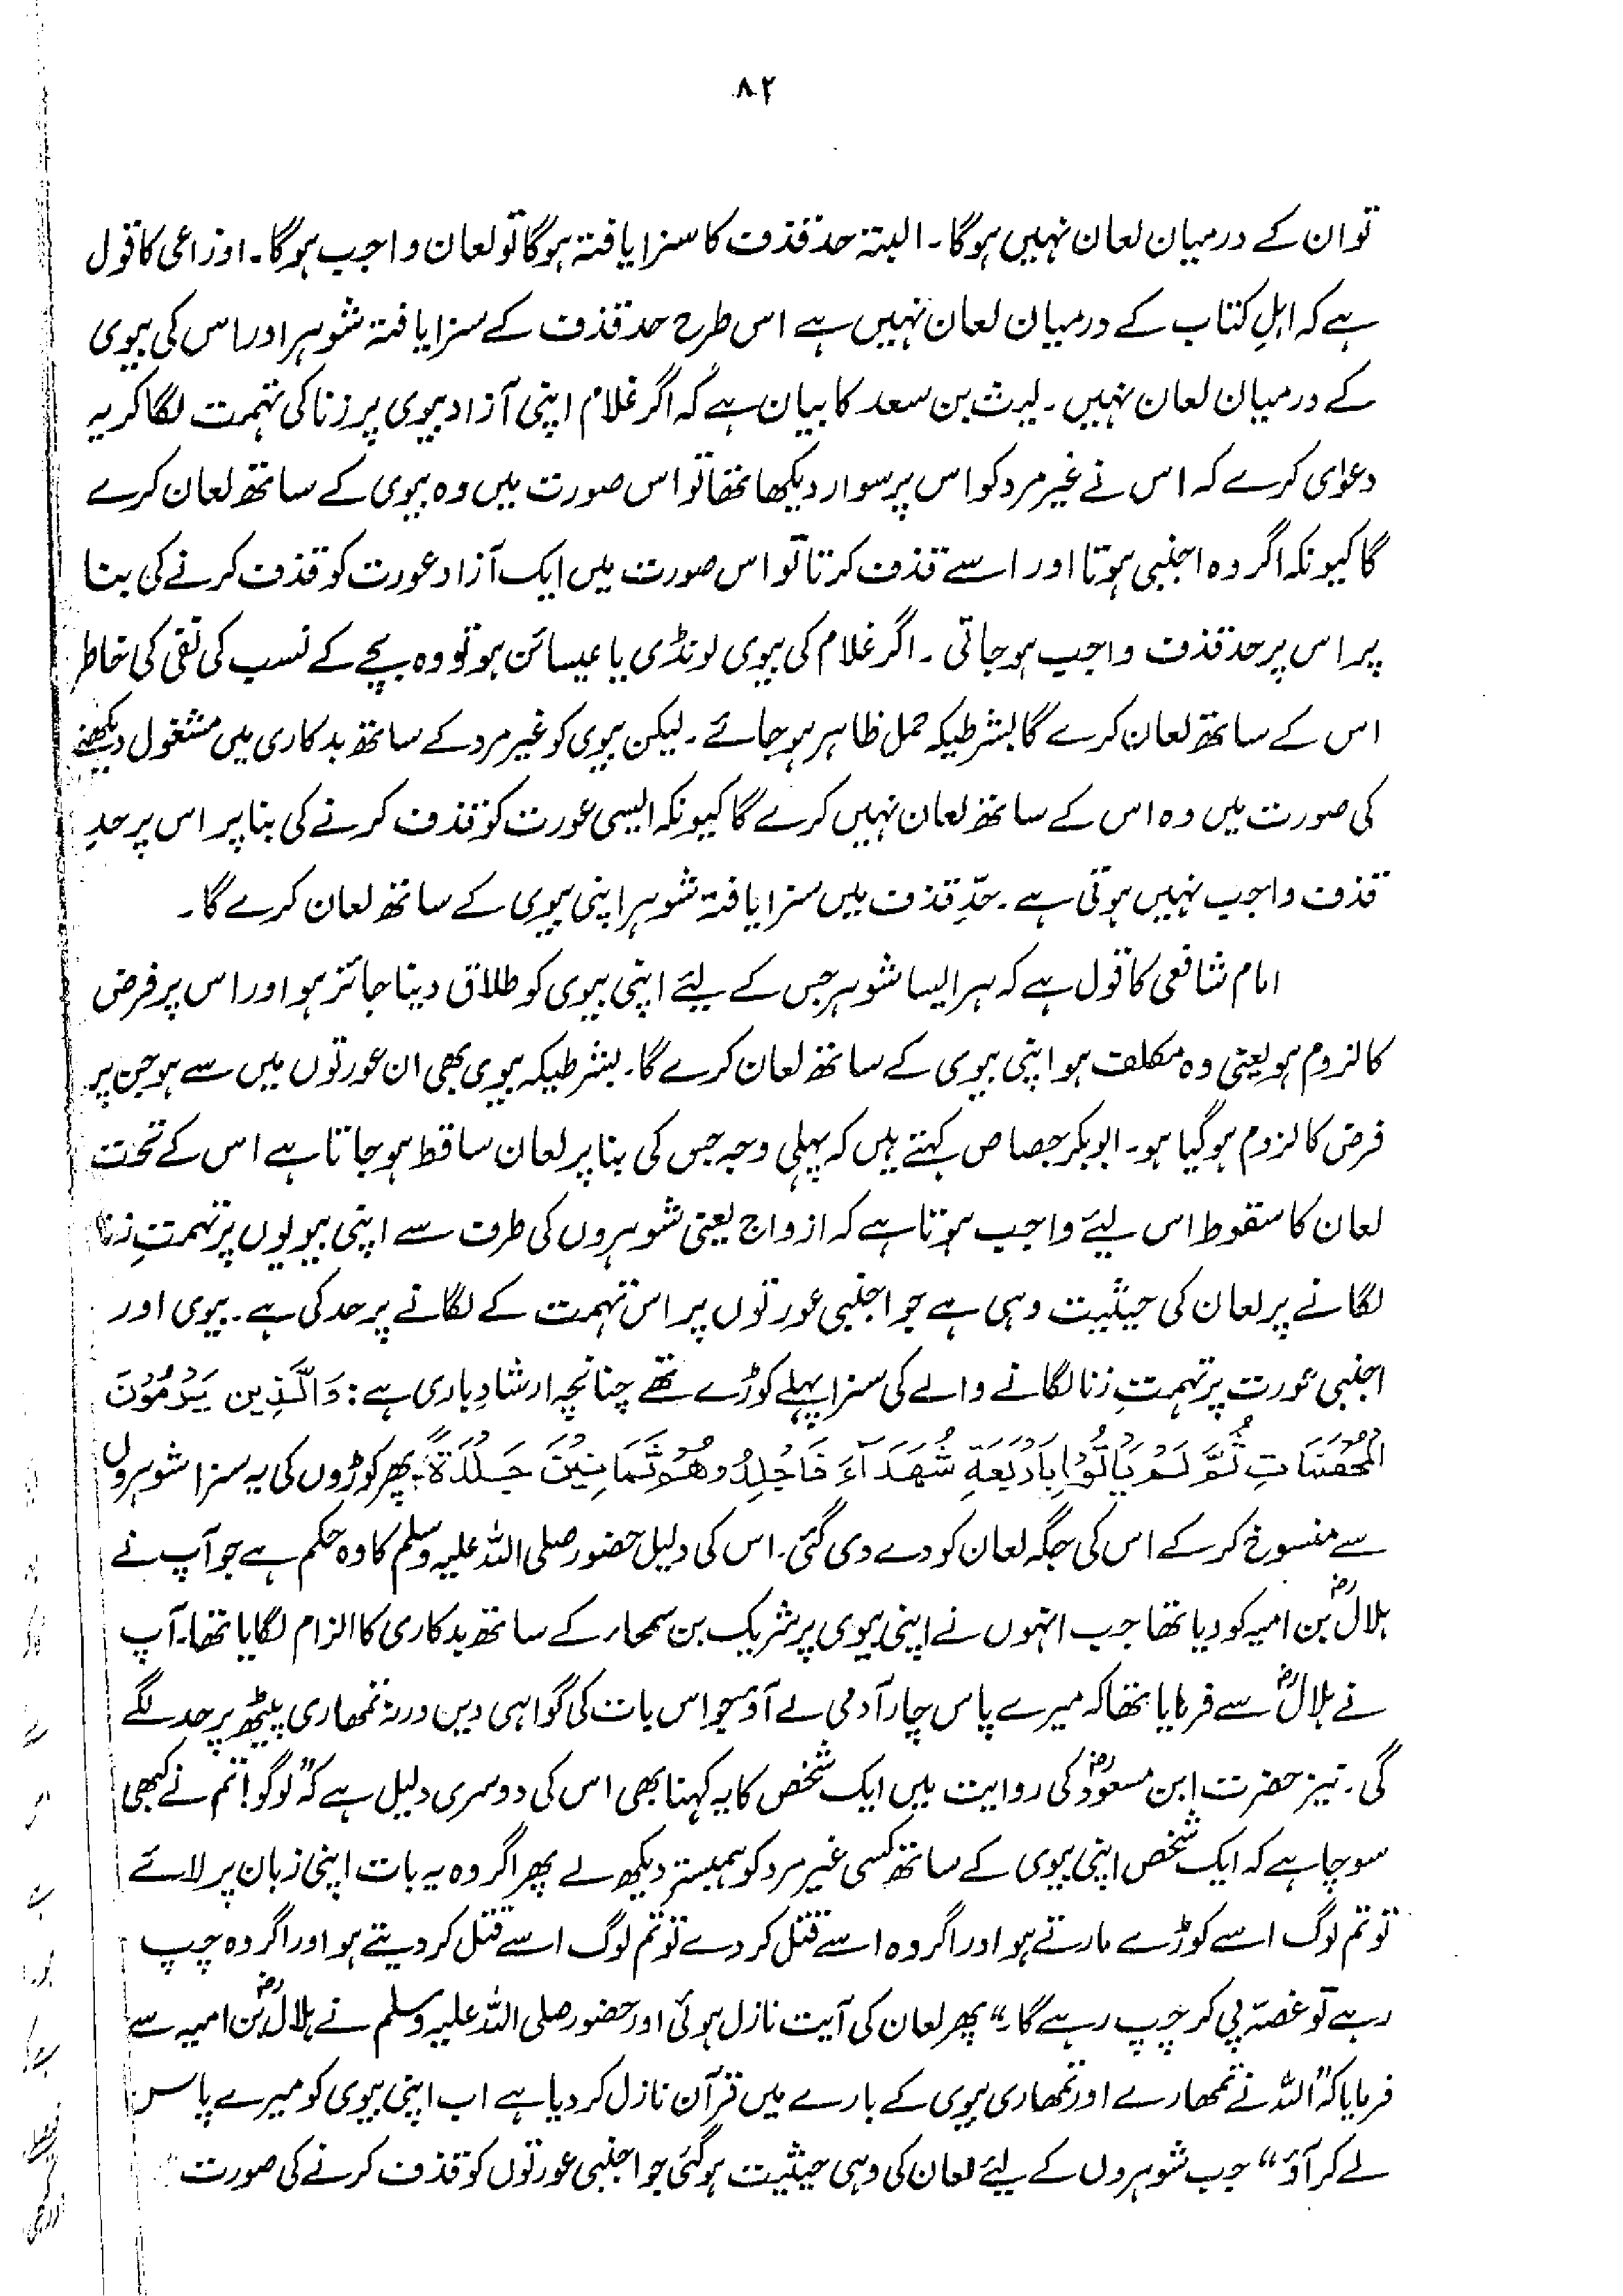 ۸۲
تو ان کے درمیان لعان نہیں ہوگا۔ البتہ حد قذف کا سزا یافتہ ہوگا تو لعان واجب ہوگا۔ اوزاعی کا قول
ہے کہ اہلِ کتاب کے درمیان لعان نہیں ہے اس طرح حد قذف کے سزا یافتہ شوہر اور اس کی بیوی
کے درمیان لعان نہیں۔ لیث بن سعد کا بیان ہے کہ اگر غلام اپنی آزاد بیوی پر زنا کی تہمت لگا کر یہ
دعوٰی کرے کہ اس نے غیر مرد کو اس پر سوار دیکھا تھا تو اس صورت میں وہ بیوی کے ساتھ لعان کرے
گا کیونکہ اگر وہ اجنبی ہوتا اور اسے قذف کرتا تو اس صورت میں ایک آزاد عورت کو قذف کرنے کی بنا
پر اس پر حد قذف واجب ہو جاتی۔ اگر غلام کی بیوی لونڈی یا عیسائن ہو تو وہ بچے کے نسب کی نفی کی خاطر
اس کے ساتھ لعان کرے گا بشرطیکہ حمل ظاہر ہو جائے۔ لیکن بیوی کو غیر مرد کے ساتھ بدکاری میں مشغول دیکھنے
کی صورت میں وہ اس کے ساتھ لعان نہیں کرے گا کیونکہ ایسی عورت کو قذف کرنے کی بنا پر اس پر حدِ
قذف واجب نہیں ہوتی ہے۔ حدِّ قذف میں سزا یافتہ شوہر اپنی بیوی کے ساتھ لعان کرے گا۔
امام شافعی کا قول ہے کہ ہر ایسا شوہر جس کے لیئے اپنی بیوی کو طلاق دینا جائز ہو اور اس پر فرض
کا لزوم ہو یعنی وہ مکلف ہو اپنی بیوی کے ساتھ لعان کرے گا۔ بشرطیکہ بیوی بھی ان عورتوں میں سے ہو جن پر
فرض کا لزوم ہو گیا ہو۔ ابوبکر جصاص کہتے ہیں کہ پہلی وجہ جس کی بنا پر لعان ساقط ہو جاتا ہے اس کے تحت
لعان کا سقوط اس لیئے واجب ہوتا ہے کہ ازواج یعنی شوہروں کی طرف سے اپنی بیویوں پر تہمتِ زنا
لگانے پر لعان کی حیثیت وہی ہے جو اجنبی عورتوں پر اس تہمت کے لگانے پر حد کی ہے۔ بیوی اور
اجنبی عورت پر تہمتِ زنا لگانے والے کی سزا پہلے کوڑے تھے چنانچہ ارشادِ باری ہے: وَالَّذِيْنَ يَرْمُوْنَ
الْمُحْصَنَاتِ ثُمَّ لَمْ يَأْتُوْا بِأَرْبَعَةِ شُهَدَآءَ فَاجْلِدُوْهُمْ ثَمَانِيْنَ جَلْدَةً۔ پھر کوڑوں کی یہ سزا شوہروں
سے منسوخ کر کے اس کی جگہ لعان کو دے دی گئی۔ اس کی دلیل حضور صلی اللہ علیہ وسلم کا وہ حکم ہے جو آپ نے
ہلالؓ بن امیہ کو دیا تھا جب انہوں نے اپنی بیوی پر شریک بن سمحار کے ساتھ بدکاری کا الزام لگایا تھا۔ آپ
نے ہلالؓ سے فرمایا تھا کہ میرے پاس چار آدمی لے آؤ جو اس بات کی گواہی دیں ورنہ تمھاری پیٹھ پر حد لگے
گی۔ نیز حضرت ابن مسعودؓ کی روایت میں ایک شخص کا یہ کہنا بھی اس کی دوسری دلیل ہے کہ "لوگو! تم نے کبھی
سوچا ہے کہ ایک شخص اپنی بیوی کے ساتھ کسی غیر مرد کو ہمبستر دیکھ لے پھر اگر وہ یہ بات اپنی زبان پر لائے
تو تم لوگ اسے کوڑے مارتے ہو اور اگر وہ اسے قتل کر دے تو تم لوگ اسے قتل کر دیتے ہو اور اگر وہ چپ
رہے تو غصہ پی کر چپ رہے گا۔" پھر لعان کی آیت نازل ہوئی اور حضور صلی اللہ علیہ وسلم نے ہلالؓ بن امیہ سے
فرمایا کہ "اللہ نے تمھارے اور تمھاری بیوی کے بارے میں قرآن نازل کر دیا ہے اب اپنی بیوی کو میرے پاس
لے کر آؤ" جب شوہروں کے لیئے لعان کی وہی حیثیت ہو گئی جو اجنبی عورتوں کو قذف کرنے کی صورت